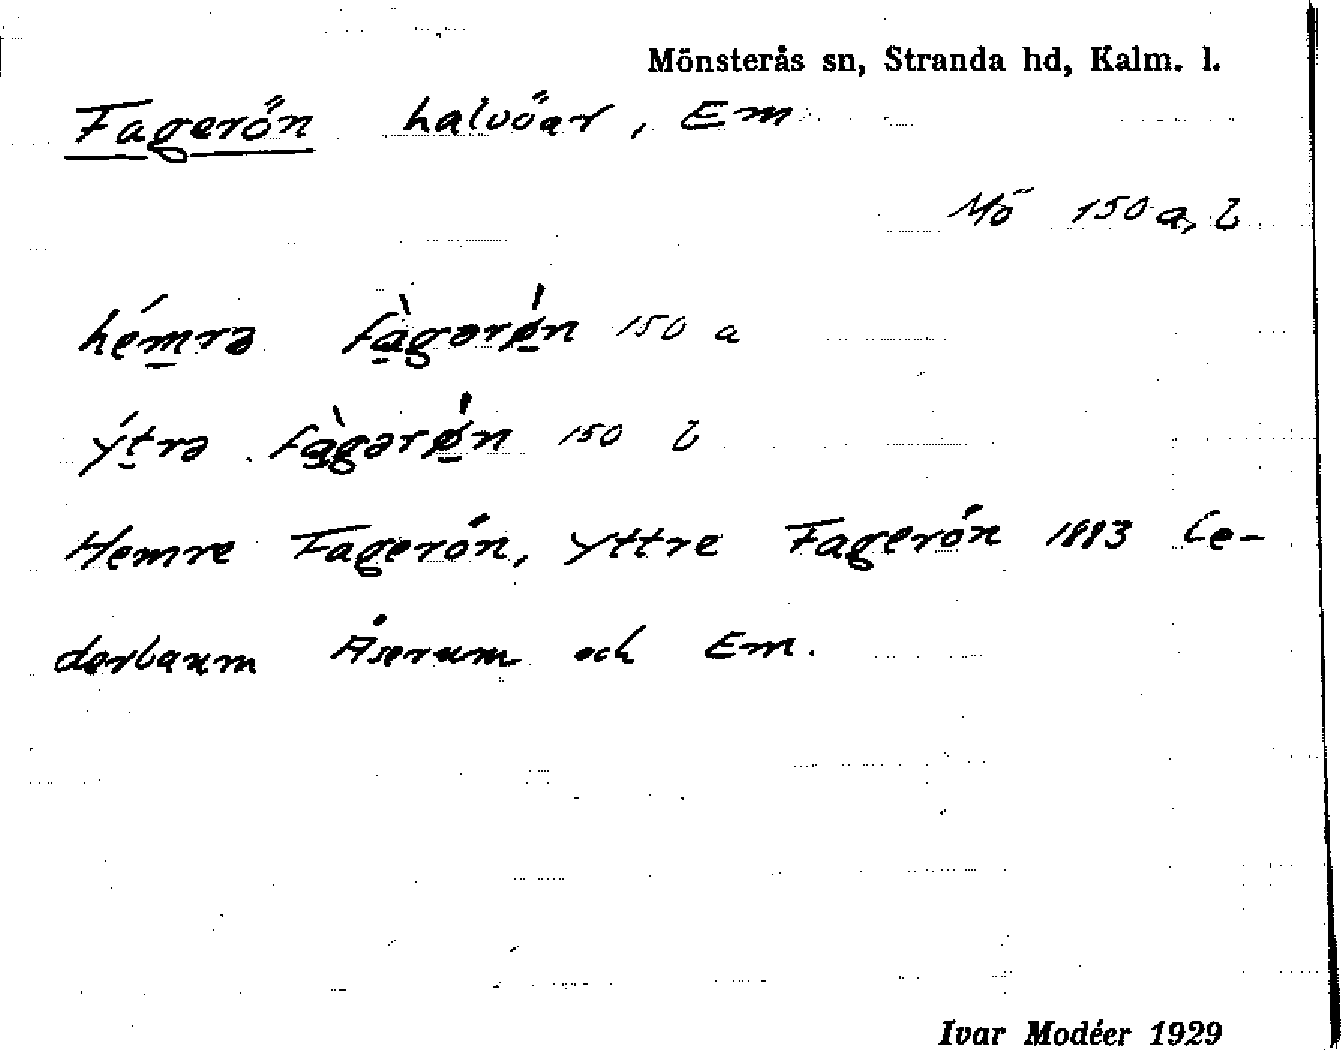 Mönsterås sn, Stranda hd, Kalm. l.
Fagerön halvöar, Em
Mö 150 a, b
hémrə fàgərǿn 150 a
ýtrə fàgərǿn 150 b
Hemre Fagerön, Yttre Fagerön 1883 Ce-
derbaum Åserum och Em.
Ivar Modéer 1929